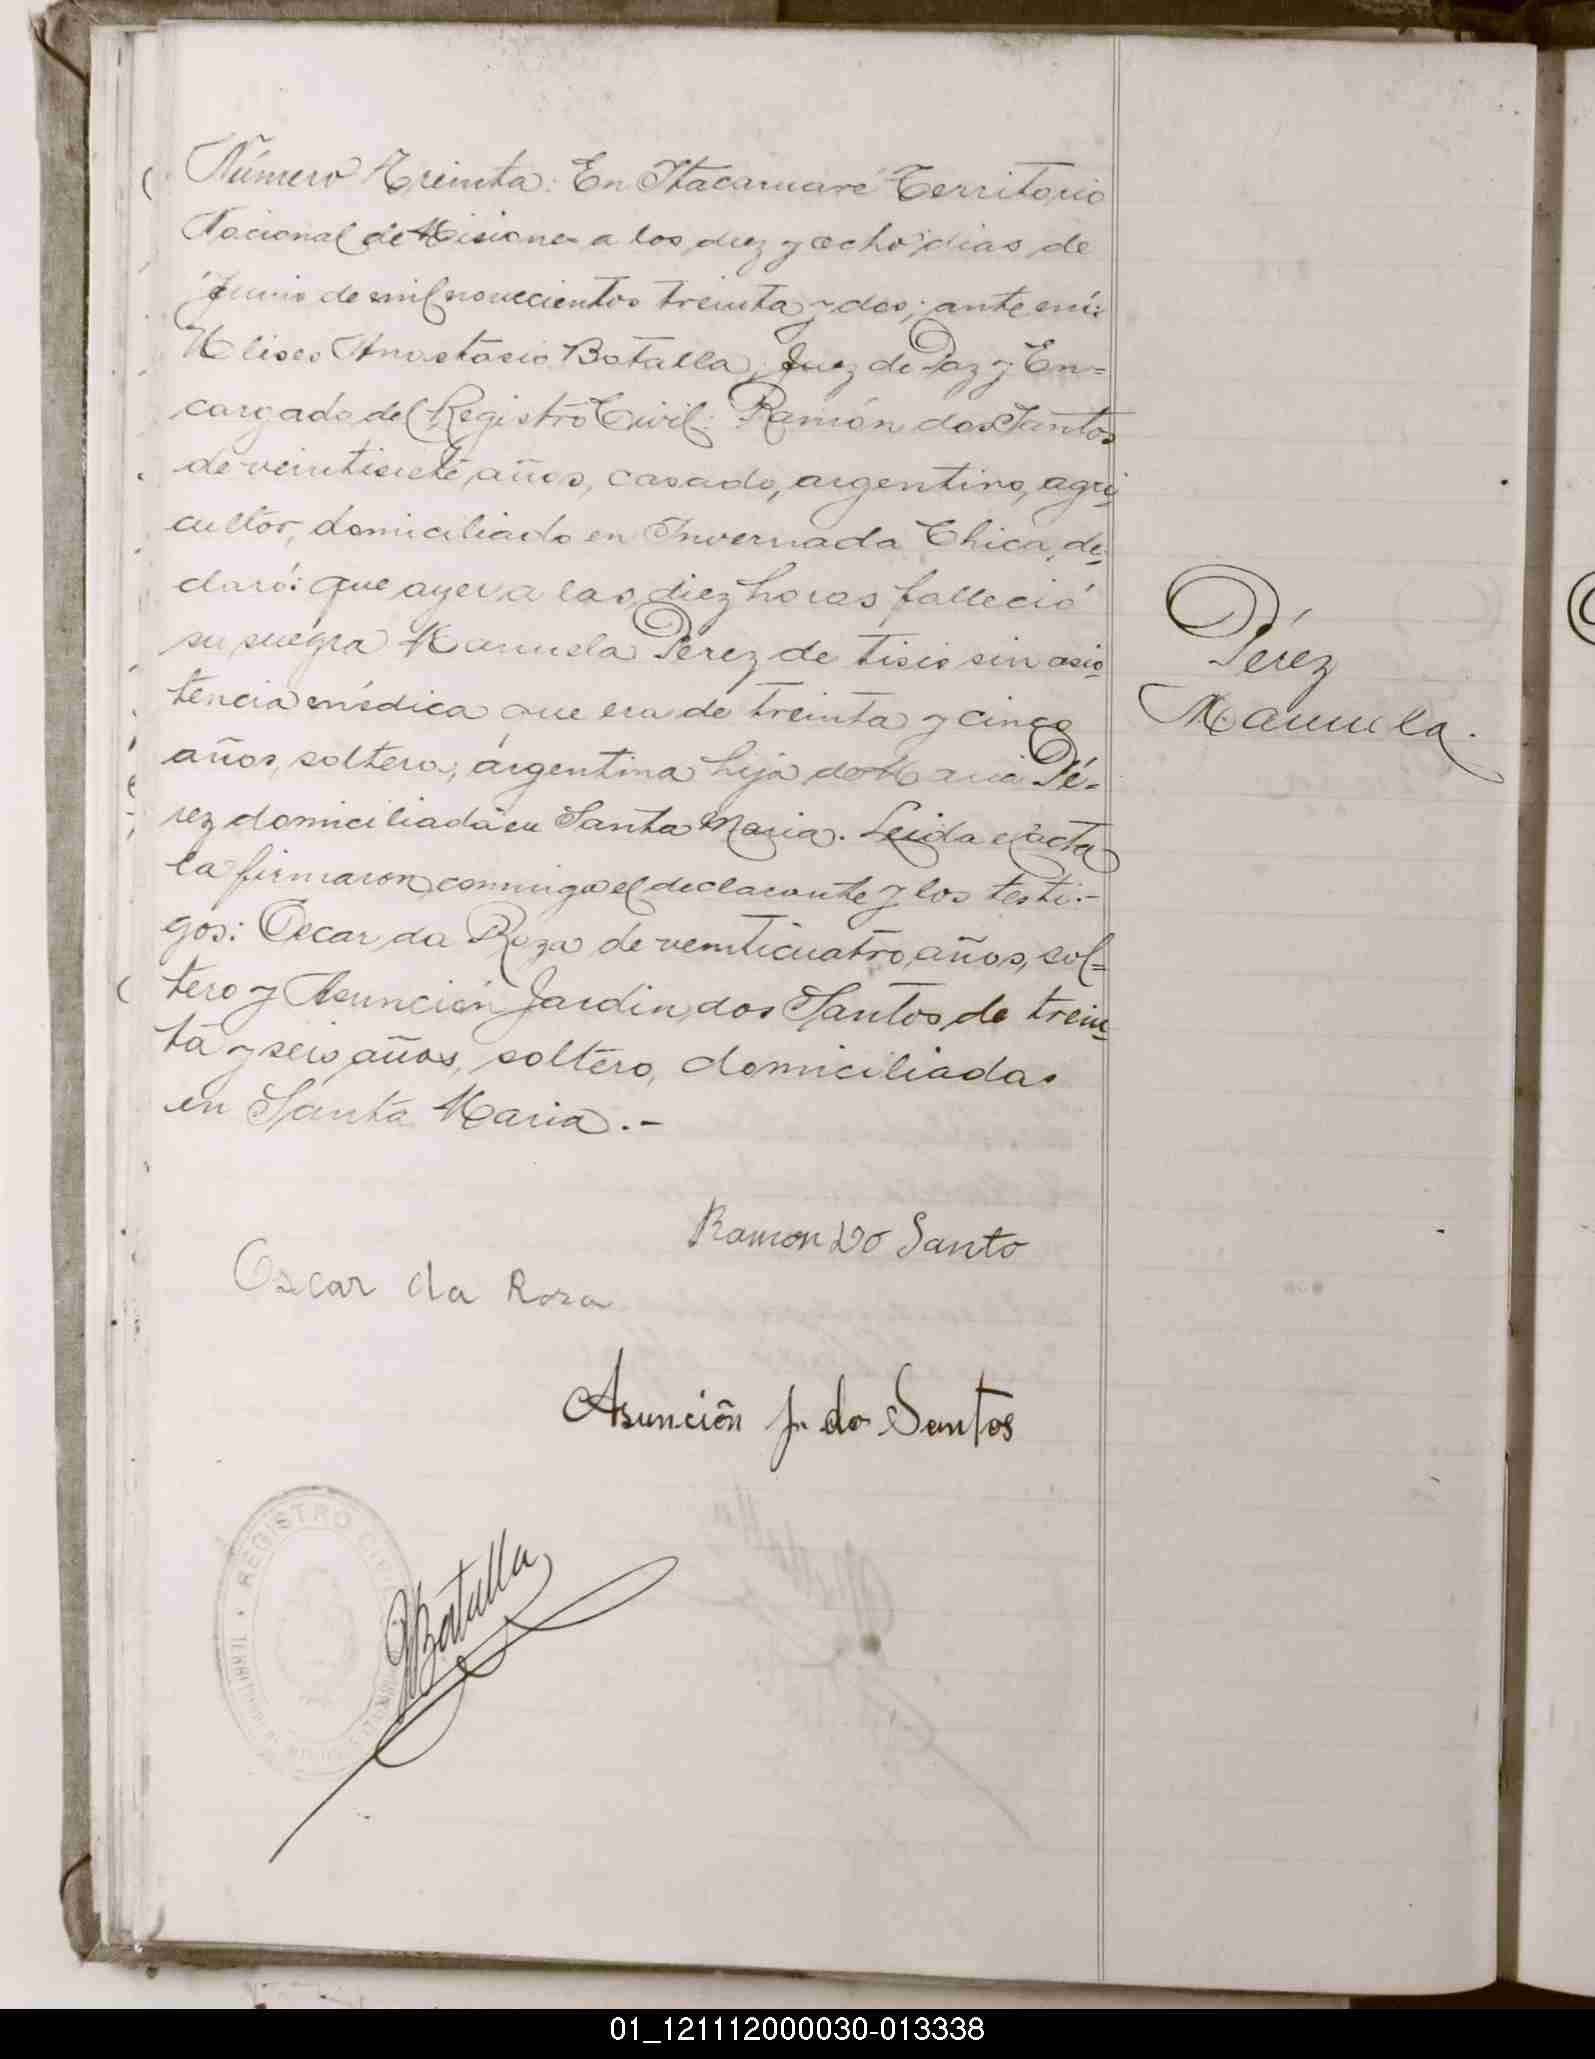 Número Treinta: En Itacaruaré Territorio
Nacional de Misiones a los diez y ocho dias de
Junio de mil novecientos treinta y dos; ante mí:
Ulises Anastasio Batalla, Juez de Paz y En=
cargado del Registro Civil: Ramón dos Santos
de veintisiete años, casado, argentino, agri
cultor, domiciliado en Invernada Chica, de-
claró: que ayer a las diez horas falleció
su suegra Manuela Pérez de tisis sin asis-
tencia médica que era de treinta y cinco
años, soltera, argentina hija de Maria Pé-
rez domiciliada en Santa Maria. Leida el acta
la firmaron conmigo el declarante y los testi.-
gos: Oscar da Roza de veinticuatro años, sol=
tero y Asunción Jardin dos Santos de trein-
ta y seis años, soltero, domiciliados
en Santa Maria.-
Pérez
Manuela.
Ramon Do Santo
Oscar da Rosa
Asunción J. do Santos
REGISTRO CIVIL
TERRITORIO
Batalla
01_121112000030-013338